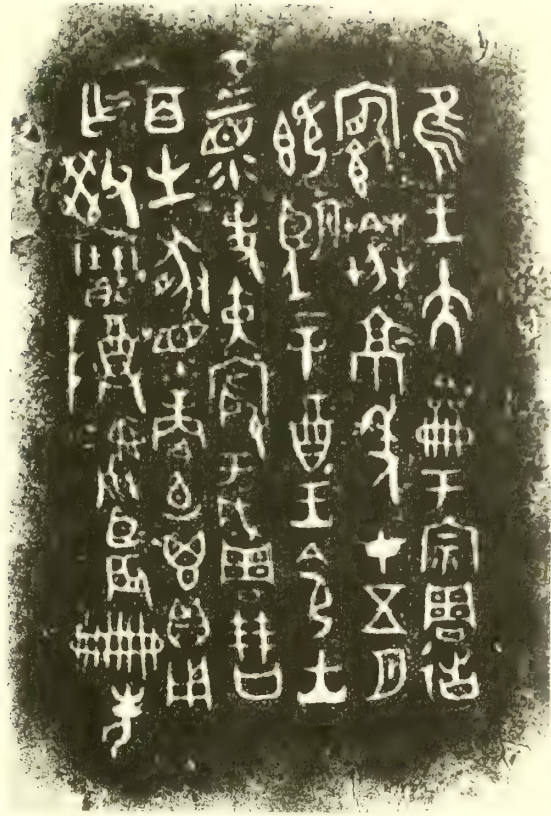 隹王大龠于宗周𢓊
京年才五月
既望辛酉王令士
上眔史寅于成周
百生豚眔賞卣鬯貝用
乍父癸寶尊彝臣辰冊